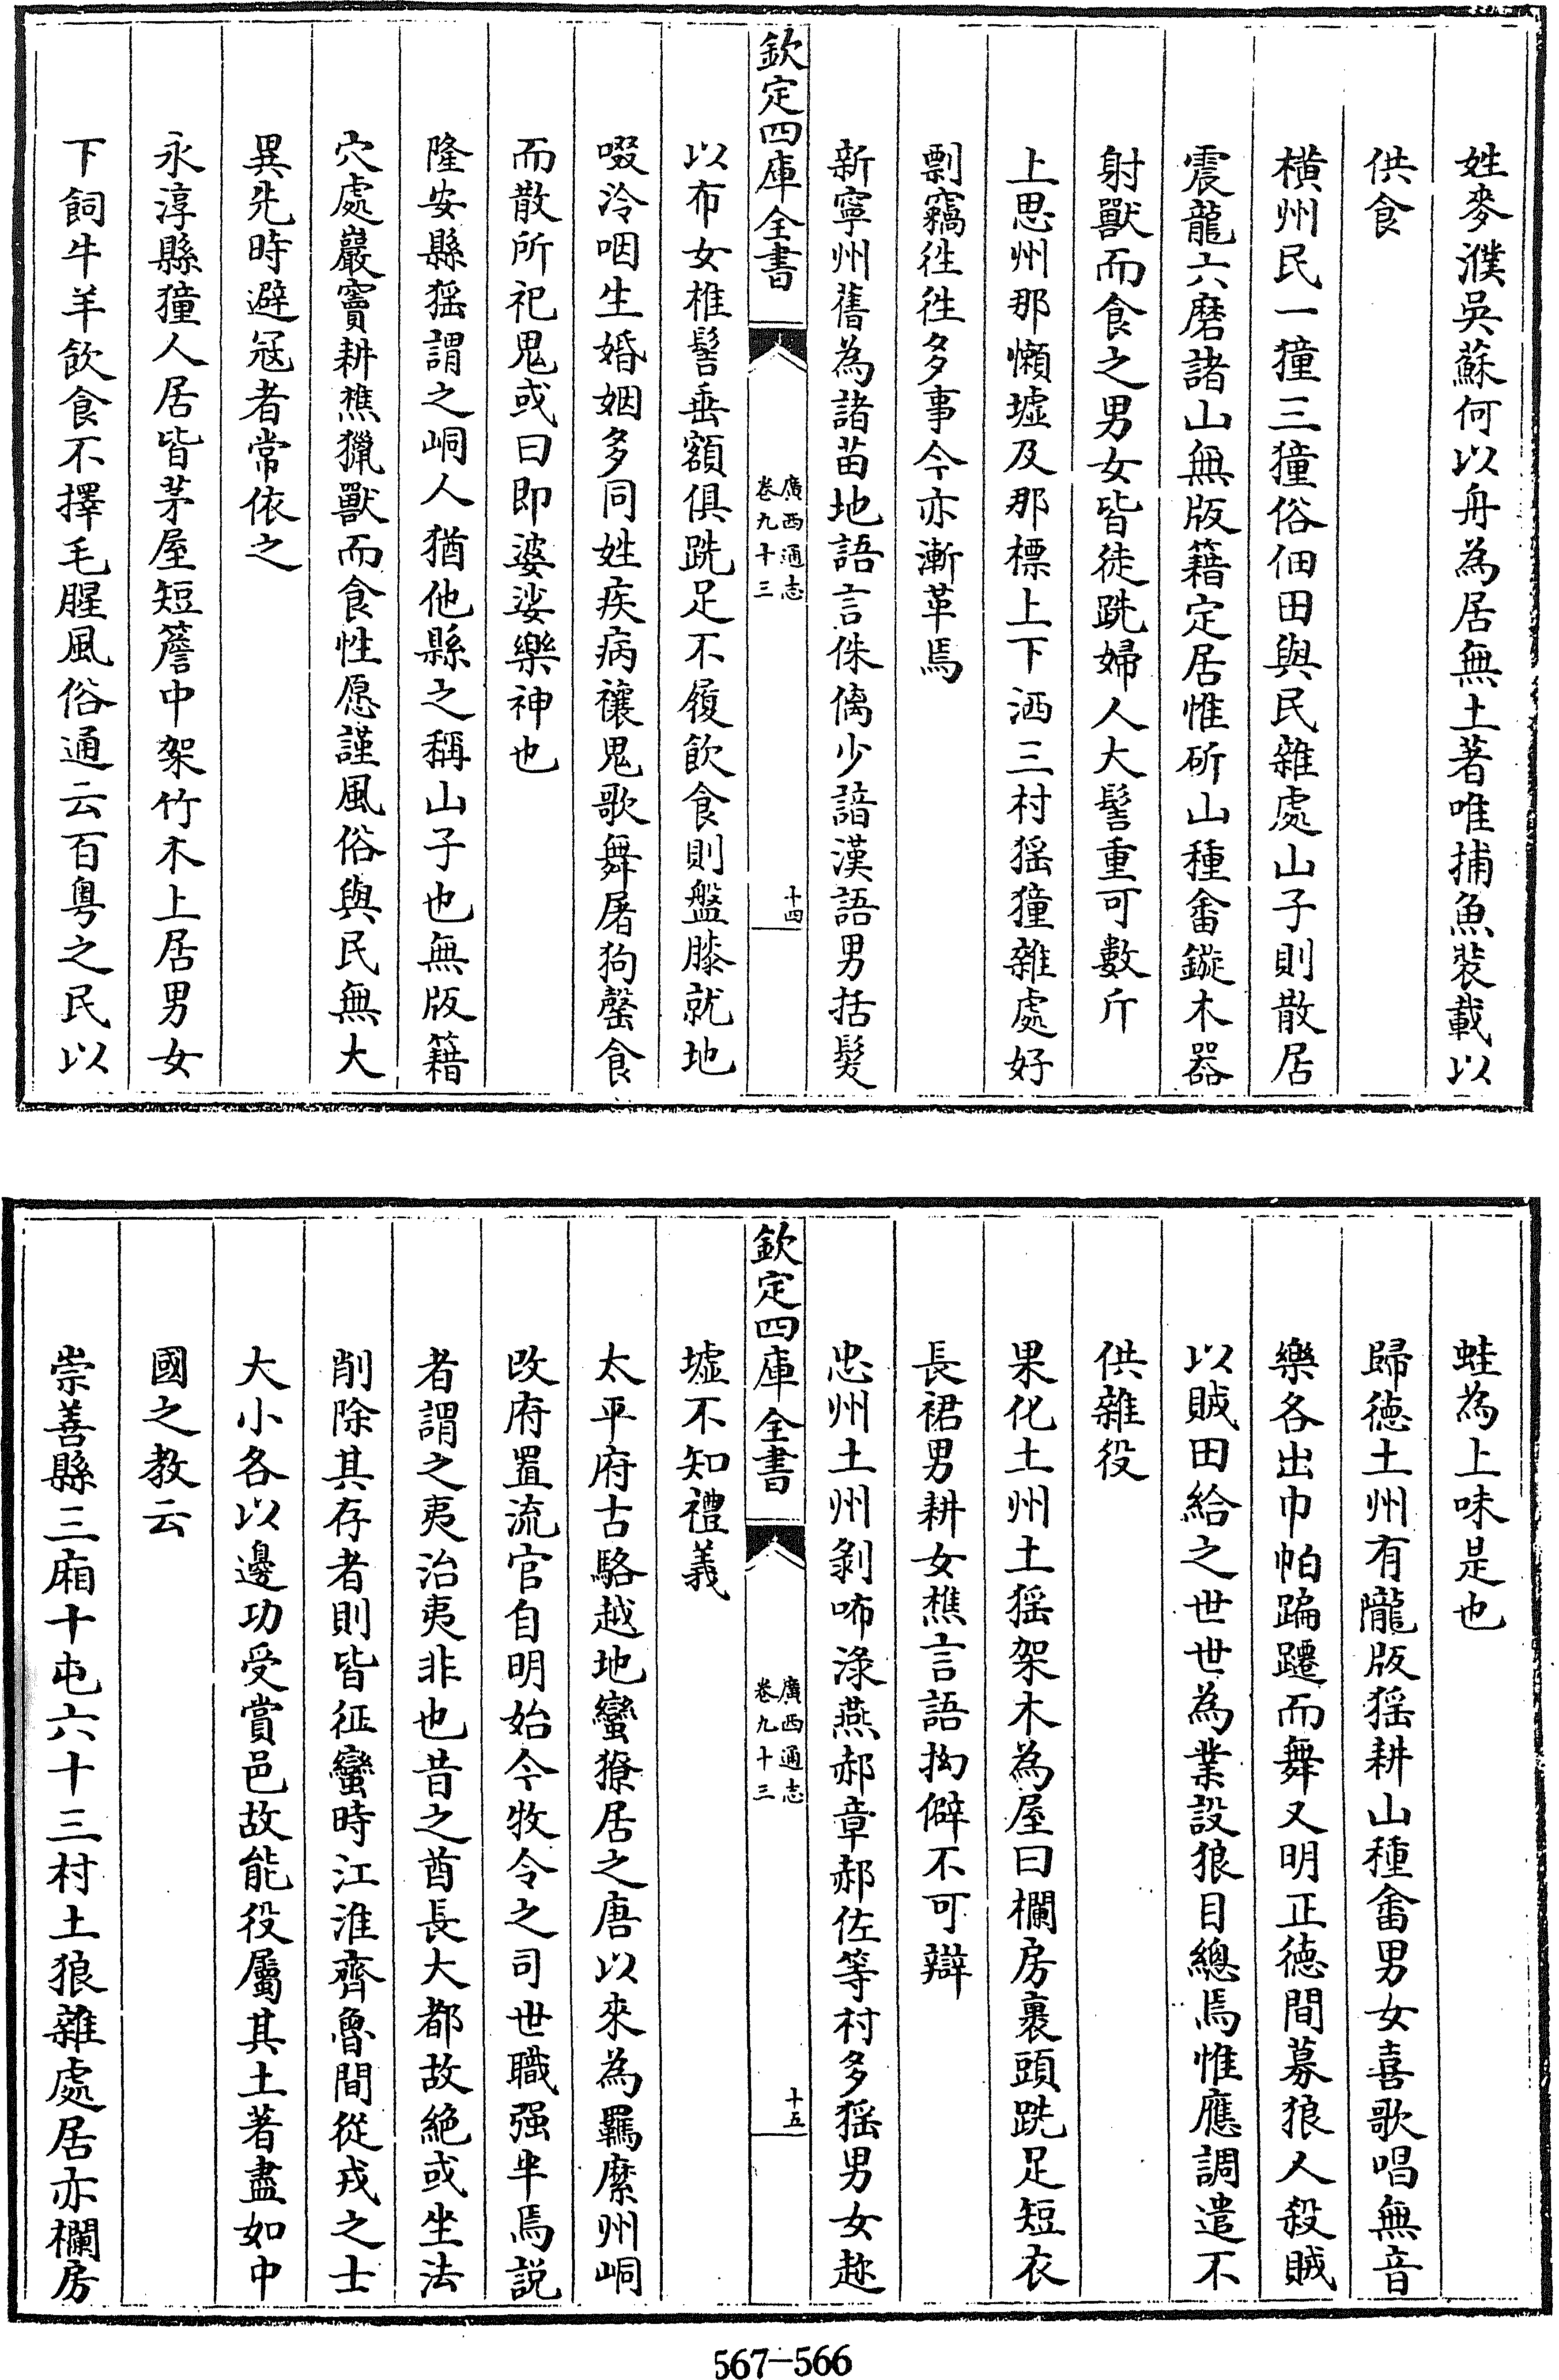 姓麥濮吳蘇何以舟為居無土著唯捕魚裝載以
供食
橫州民一獞三獞俗佃田與民雜處山子則散居
震龍六磨諸山無版籍定居惟斫山種畬鏇木器
射獸而食之男女皆徒跣婦人大髻重可數斤
上思州那懶墟及那標上下洒三村猺獞雜處好
剽竊徃徃多事今亦漸革焉
新寧州舊為諸苗地語言侏㒧少諳漢語男括髮
欽定四庫全書
廣西通志
卷九十三
十四
以布女椎髻垂額俱跣足不履飲食則盤膝就地
啜冷咽生婚姻多同姓疾病禳鬼歌舞屠狗罄食
而散所祀鬼或曰即婆娑樂神也
隆安縣猺謂之峒人猶他縣之稱山子也無版籍
穴處巖竇耕樵獵獸而食性愿謹風俗與民無大
異先時避冦者常依之
永淳縣獞人居皆茅屋短簷中架竹木上居男女
下飼牛羊飲食不擇毛腥風俗通云百粤之民以
蛙為上味是也
歸徳土州有隴版猺耕山種畬男女喜歌唱無音
樂各出巾帕蹁躚而舞又明正徳間募狼人殺賊
以賊田給之世世為業設狼目總焉惟應調遣不
供雜役
果化土州土猺架木為屋曰欄房裹頭跣足短衣
長裙男耕女樵言語拗僻不可辯
忠州土州剝咘淥燕郝章郝佐等村多猺男女趂
欽定四庫全書
廣西通志
卷九十三
十五
墟不知禮義
太平府古駱越地蠻獠居之唐以來為羈縻州峒
改府置流官自明始今牧令之司世職强半焉説
者謂之夷治夷非也昔之酋長大都故絶或坐法
削除其存者則皆征蠻時江淮齊魯間從戎之士
大小各以邊功受賞邑故能役屬其土著盡如中
國之教云
崇善縣三廂十屯六十三村土狼雜處居亦欄房
567—566